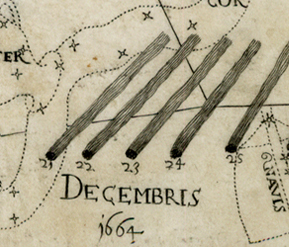 COR
TER
21 22 23 24 25
DECEMBRIS
1664
GNAVIS